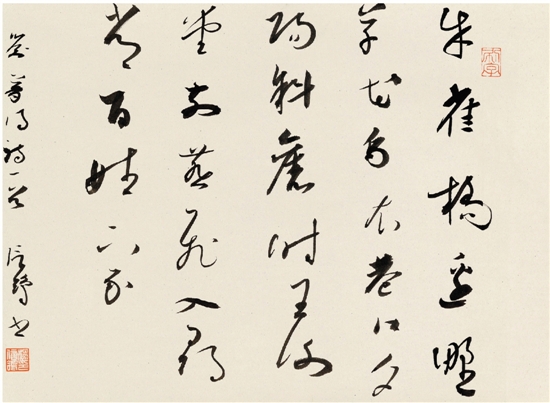 朱雀橋邊野
草花烏衣巷口夕
陽斜舊時王謝
堂前燕飛入尋
常百姓家
夢得詩一首 書